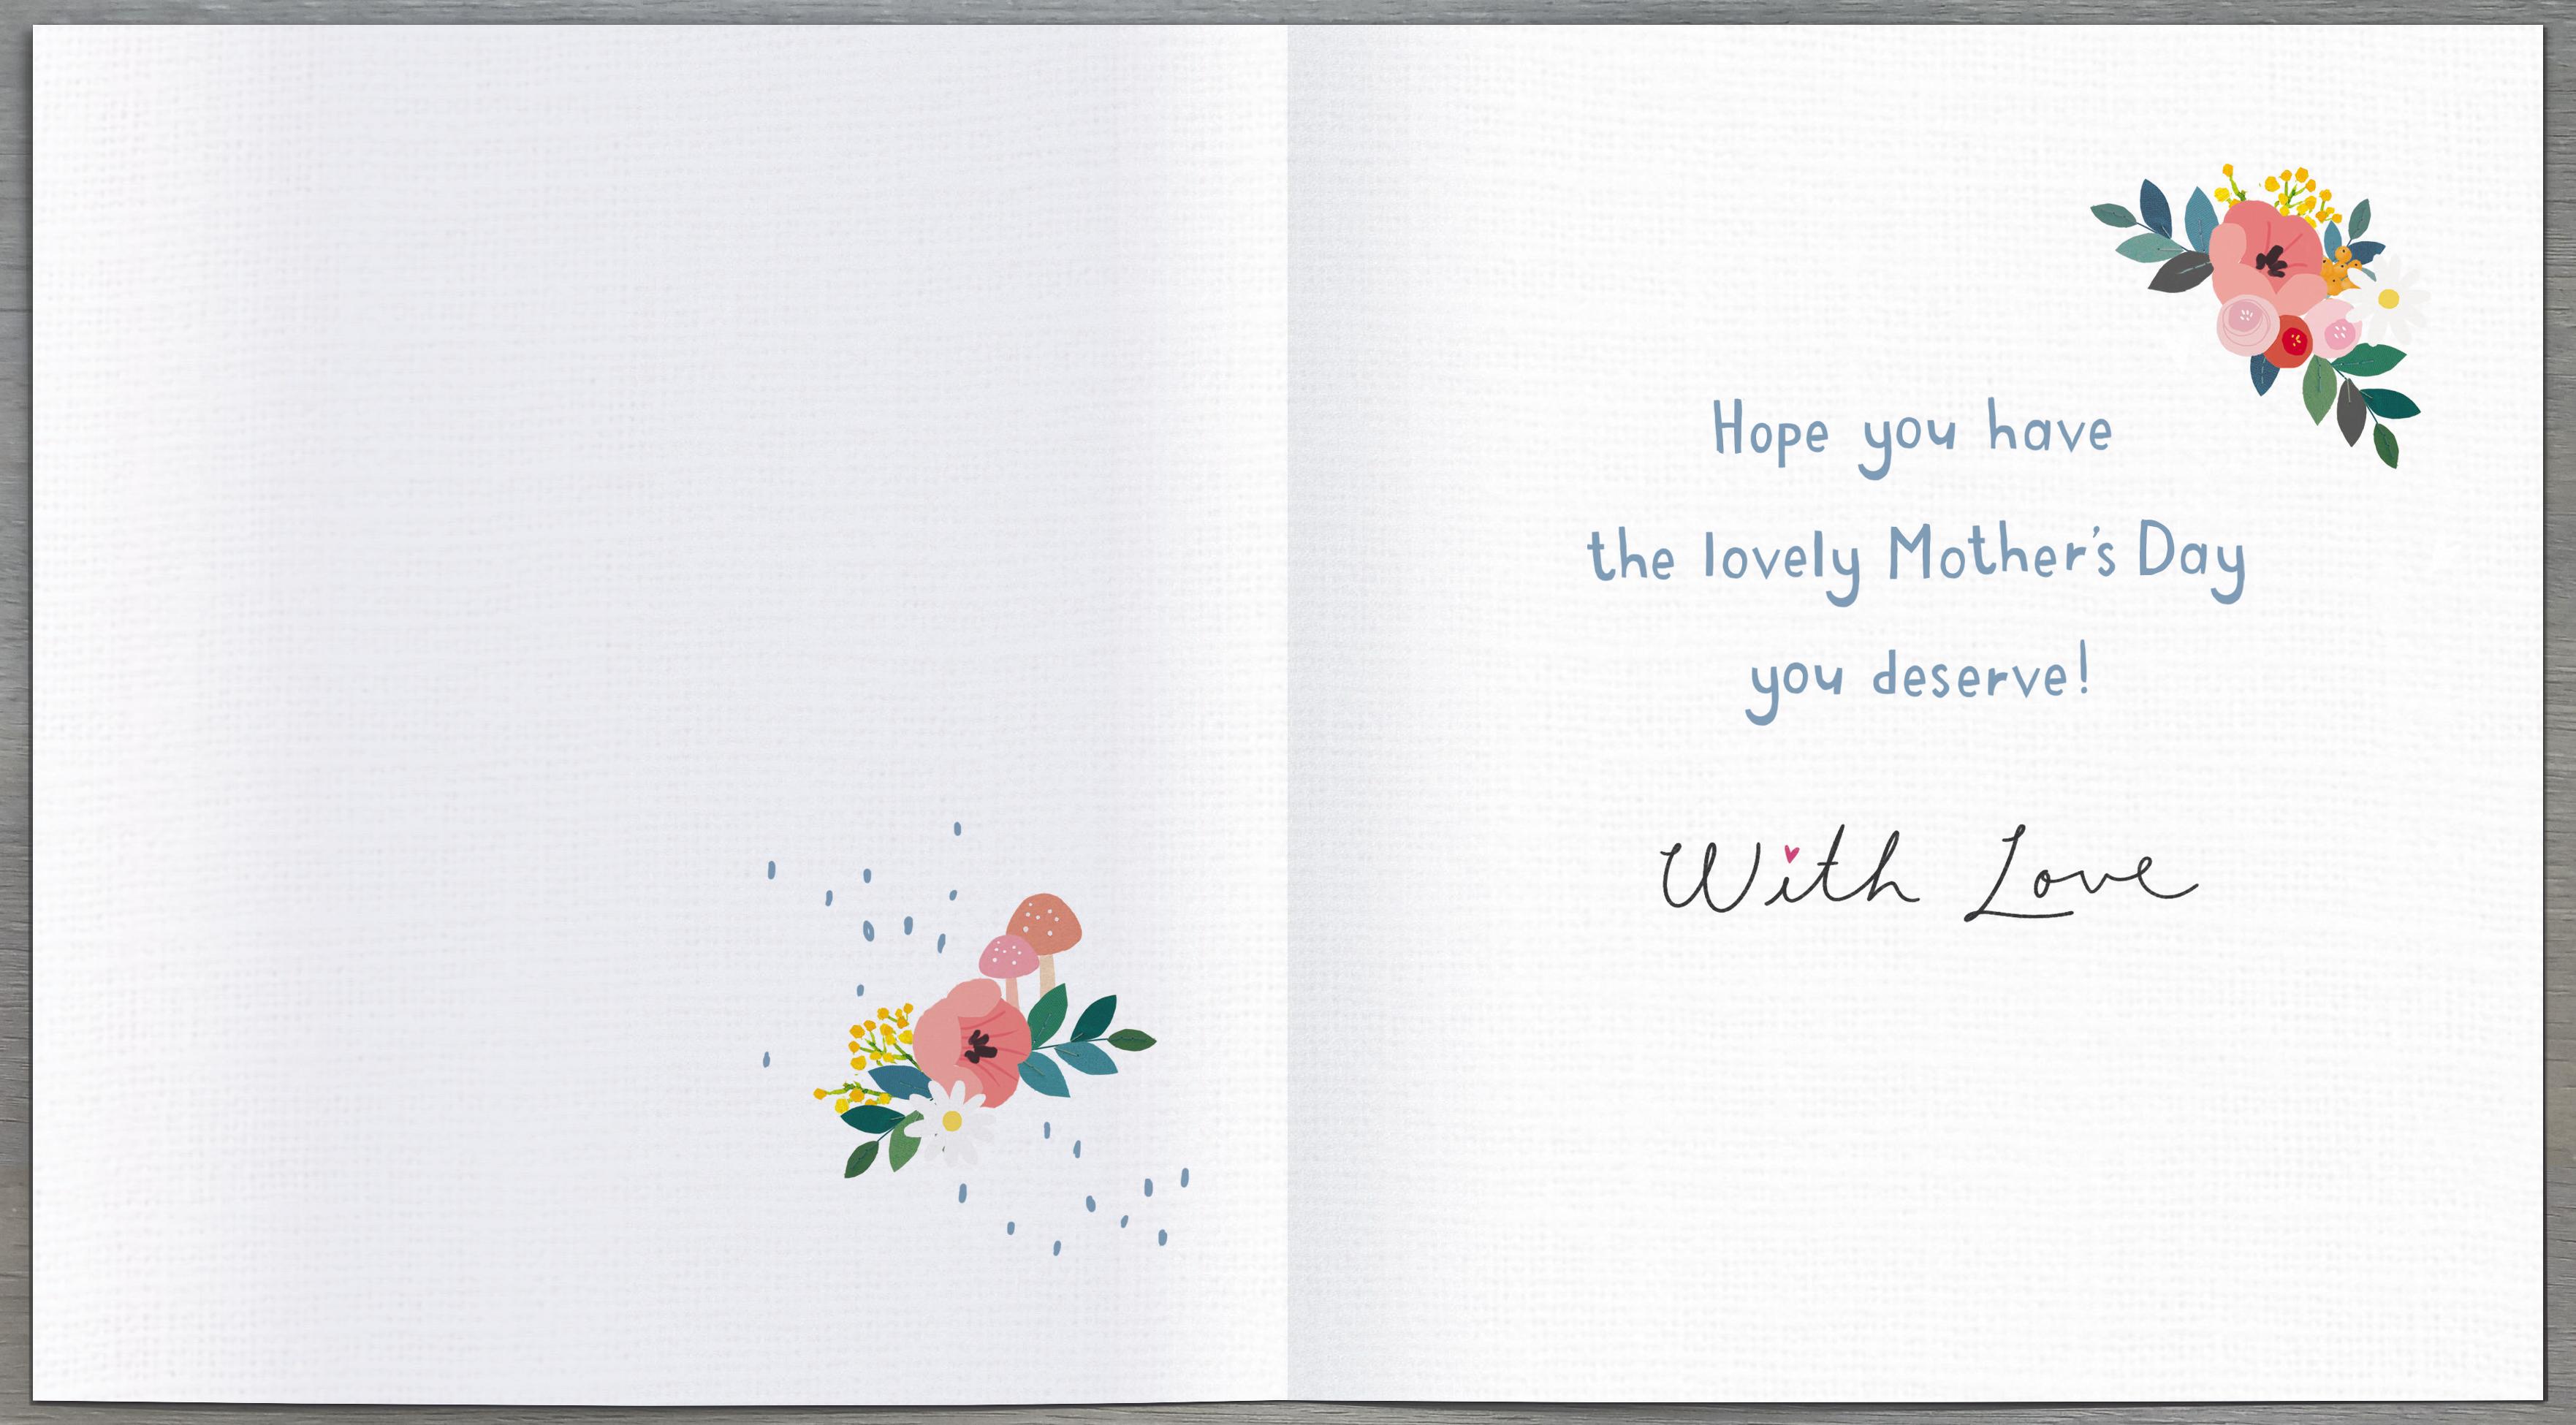 Hope you have
the lovely Mother's Day
you deserve!
With Love